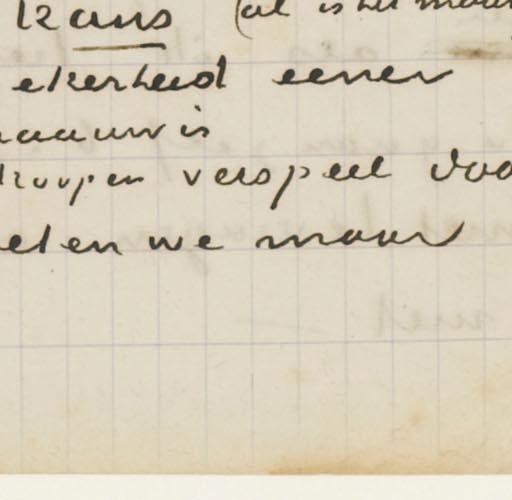 kans (al is het maar
ekerheid eener
naauw is
koopen verspeel doo
eten we maar